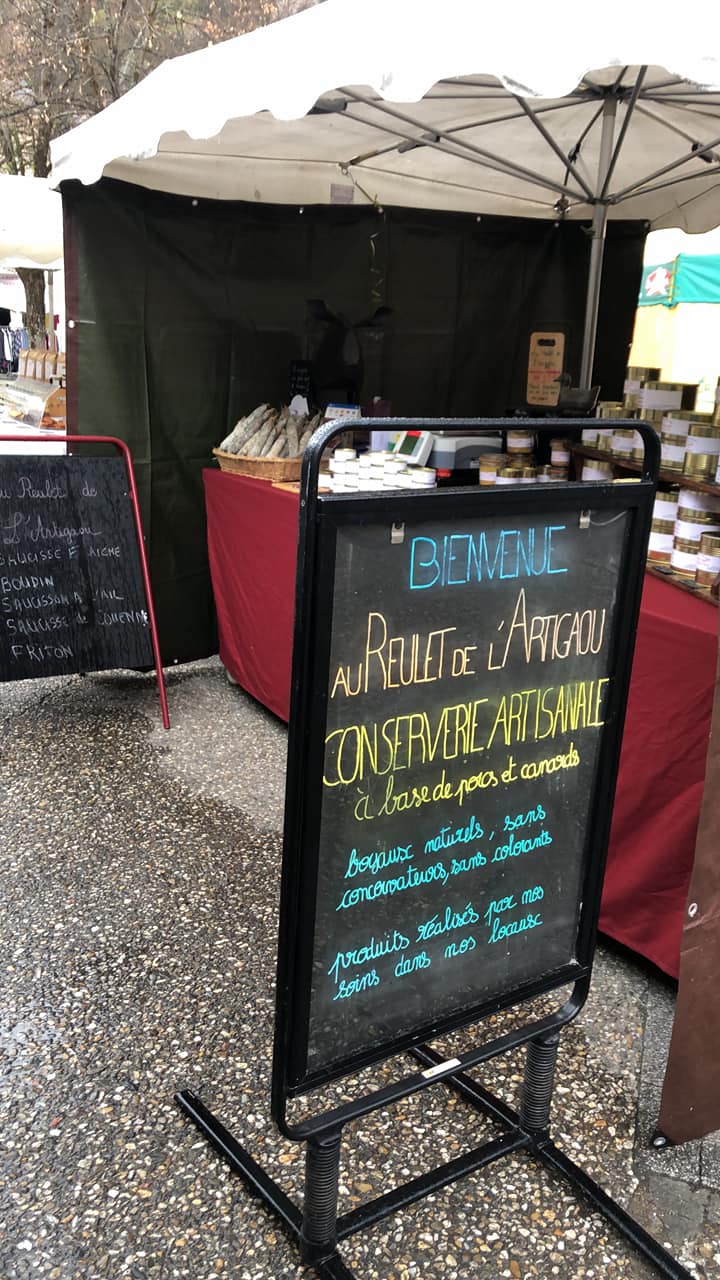 BIENVENUE
AU REULET DE L'ARTIGAOU
CONSERVERIE ARTISANALE
à base de porcs et canards
boyaux naturels, sans
concervateurs, sans colorants
produits réalisés par nos
soins dans nos locaux
au Reulet de
L'Artigaou
SAUCISSE FRAICHE
BOUDIN
SAUCISSON A L'AIL
SAUCISSE de COUENNE
FRITON